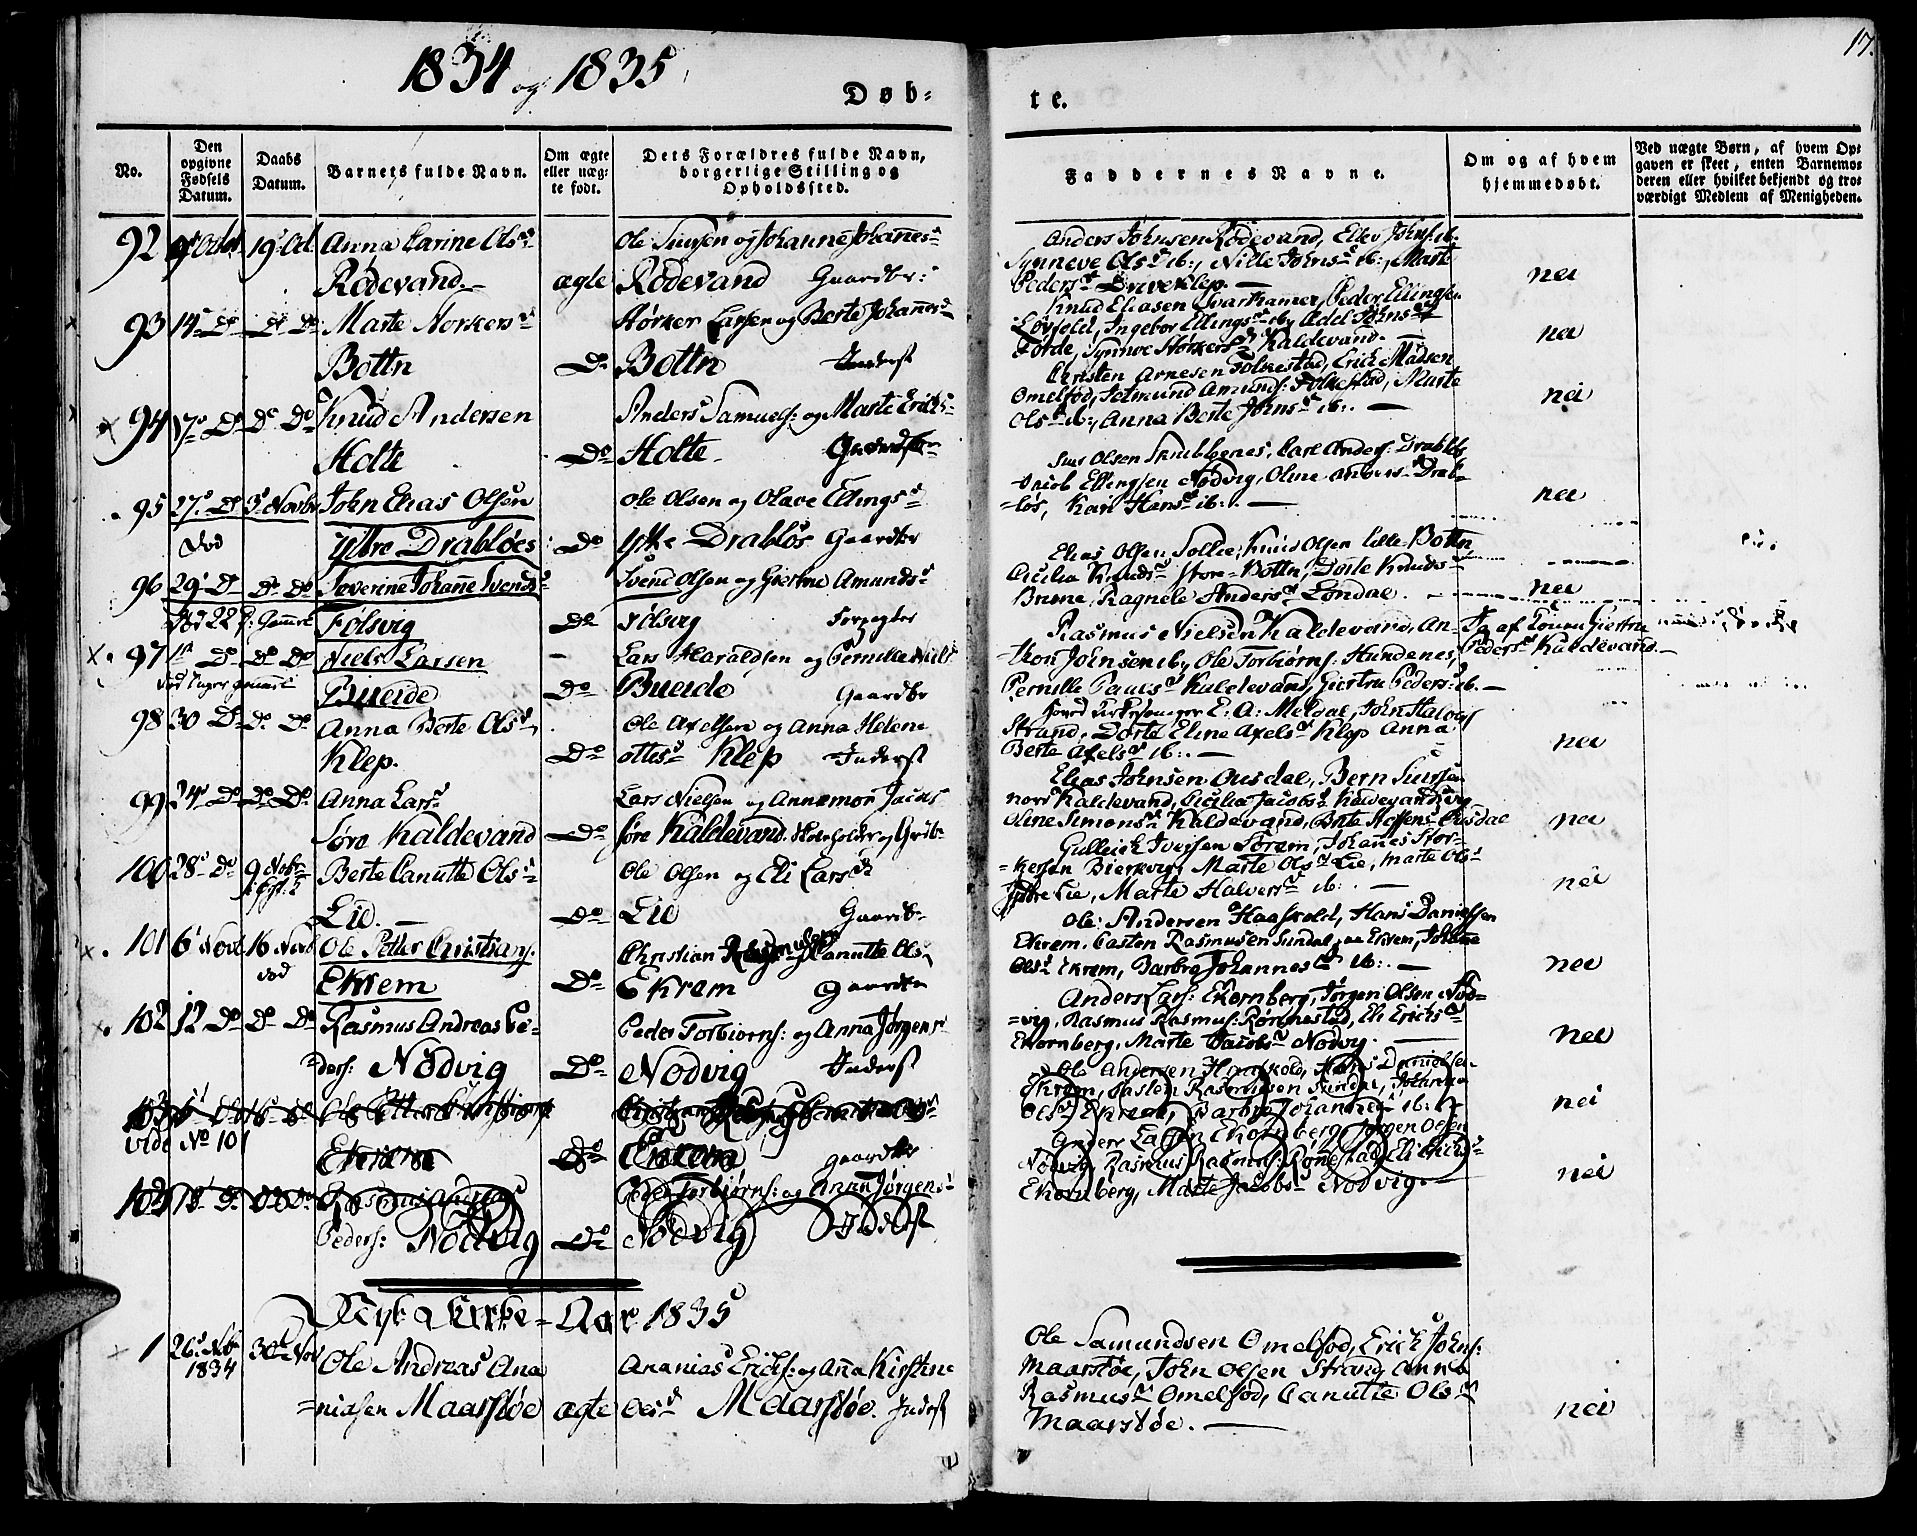 1834 og 1835
Døb-
te.
17.
No.
Den opgivne Fødsels Datum.
Daabs Datum.
Barnets fulde Navn.
Om ægte eller uægte født.
Dets Forældres fulde Navn, borgerlige Stilling og Opholdssted.
Faddernes Navne.
Om og af hvem hjemmedøbt.
Ved uægte Børn, af hvem Opgaven er skeet, enten Barnemoderen eller hvilket bekjendt og troværdigt Medlem af Menigheden.
92 19de Oct. Anna Carine Olsd
Rødevand.— ægte
Ole Siursen og Johanne Johannesd
Rødevand Gaardbr:
Anders Johnsen Rødevand, Ellev Johns: ib.
Synneve Olsd ib:, Nille Johnsd ib:, Marte
Pedersd Drive Klep.—
nei
93 14d Do Do Do Marte Størkersd
Bottn Do
Størker Larsen og Berte Johannesd
Bottn Inderst
Knud Eliasen Svarthamer, Peder Ellingsen
Løvfold, Ingebor Ellingsd ib, Adel Johnsd
Førde, Synnve Størkersd Kaldevand.—
nei
94 17de Do Do Do Knud Andersen
Holte Do
Anders Samuels: og Marte Ericksd
Holte
Christen Arnesen Folkestad, Erick Madsen
Omelfod, Tetmund Amunds: Folkestad, Marte
Olsd ib:, Anna Berte Johnsd ib:.—
nei
95 27d Do 3d Novbr John Elias Olsen
død Ytre Drabløes Do
Ole Olsen og Olave Ellingsd
Ytre Drabløs Gaardbr
Siur Olsen Skubbenes, Carl Anders: Drabløs
Jacob Ellingsen Nødvig, Oline Andersd Drab-
=løs, Kari Hansd ib:.—
nei
96 29d Do Do Do Severine Johane Svendsd
død 22 Gammel Følsvig Do
Svend Olsen og Giertrue Amundsd
Følsvig Forpagter
Elias Olsen Sollie, Knud Olsen Lille-Bottn
Cicilia Knudsd Store-Bottn, Dorte Knudsd
Brune, Ragnele Andersd Løndal.—
nei
97 Do Do Do Niels Larsen
Bueide Do
Lars Haraldsen og Pernille Nielsd
Bueide Gaardbr
Rasmus Nielsen Kaldevand, An-
thon Johnsen ib, Ole Torbiørns: Hundenes,
Pernille Paulsd Kaldevand, Giertru Pedersd ib.—
Ja af Giertrue
Pedersd Kaldevand—
98 30 Do Do Do Anna Berte Olsd
Klep. Do
Ole Axelsen og Anna Helene
Ottesd Klep Inderst
Kirkesanger E: A: Meldal, John Halvors
Strand, Dorte Eline Axelsd Klep Anna
Berte Axelsd ib:.—
nei
99 24d Do Do Do Anna Larsd
Søre Kaldevand Do
Lars Nielsen og Annemor Jacobsd
Søre Kaldevand
Elias Johnsen Ousdal, Bern Siursen
nors Kaldevand, Cicilia Jacobsd Kaldevandsvig
Oline Simonsd Kaldevand, Brite Steffensd Ousdal
nei
100 28d Do 9 Nobr Berte Canutte Olsd
Lid.— Do
Ole Olsen og Eli Larsd
Lid Gaardb
Gulleick Iversen Sørem, Johannes Stor-
=kersen Bierkvig, Marte Olsd Lie, Marte Olsd
Indre Lie, Marte Halversd ib:.—
nei
101 6d Novb 16 Novb Ole Petter Christians:
død Ekrem Do
Christian Rasmusen og Canutte Olsd
Ekrem Gaardbr
Ole Andersen Haaskold, Hans Danielsen
Ekrem, Casten Rasmusen Sundal, Johanne
Olsd Ekrem, Barbro Johannesd ib:.—
nei
102 12 Do Do Do Rasmus Andreas Pe-
ders: Nødvig Do
Peder Torbiørns: og Anna Jørgensd
Nødvig Inderst
Anders Lars: Ekornberg, Jørgen Olsen Nød-
=vig, Rasmus Rasmus: Rønnestad, Eli Ericksd
Ekornberg, Marte Jacobsd Nødvig.—
nei
103 6d Do 16d Do Ole Petter Christians:
vide No 101 Ekrem Do
Ekrem gaardbr
Ole Andersen Haaskold, Hans Danielsen
Ekrem, Casten Rasmusen Sundal, Johanna
Olsd Ekrem, Barbro Johannesd ib:
nei
Rasmus Andreas
Peders: Nødvig Do
Peder Torbiørns: og Anna Jørgensd
Nødvig Inderst
Anders Larsen Ekornberg Jørgen Olsen
Nødvig, Rasmus Rasmus: Rønestad, Eli Ericksd
Ekornberg, Marte Jacobsd Nødvig.
nei
Nyt Kirke-Aar 1835
1 26d Nvb 1834 30d Nov Ole Andreas Ana
=niasen Maarstøe ægte
Ananias Ericks: og Anna Kirstine
Olsd Maarstøe. Inderst
Ole Samundsen Omelfod, Erick Johns:
Maarstøe, John Olsen Strand, Anna
Rasmusd Omelfod, Canutte Olsd
Maarstøe.—
nei